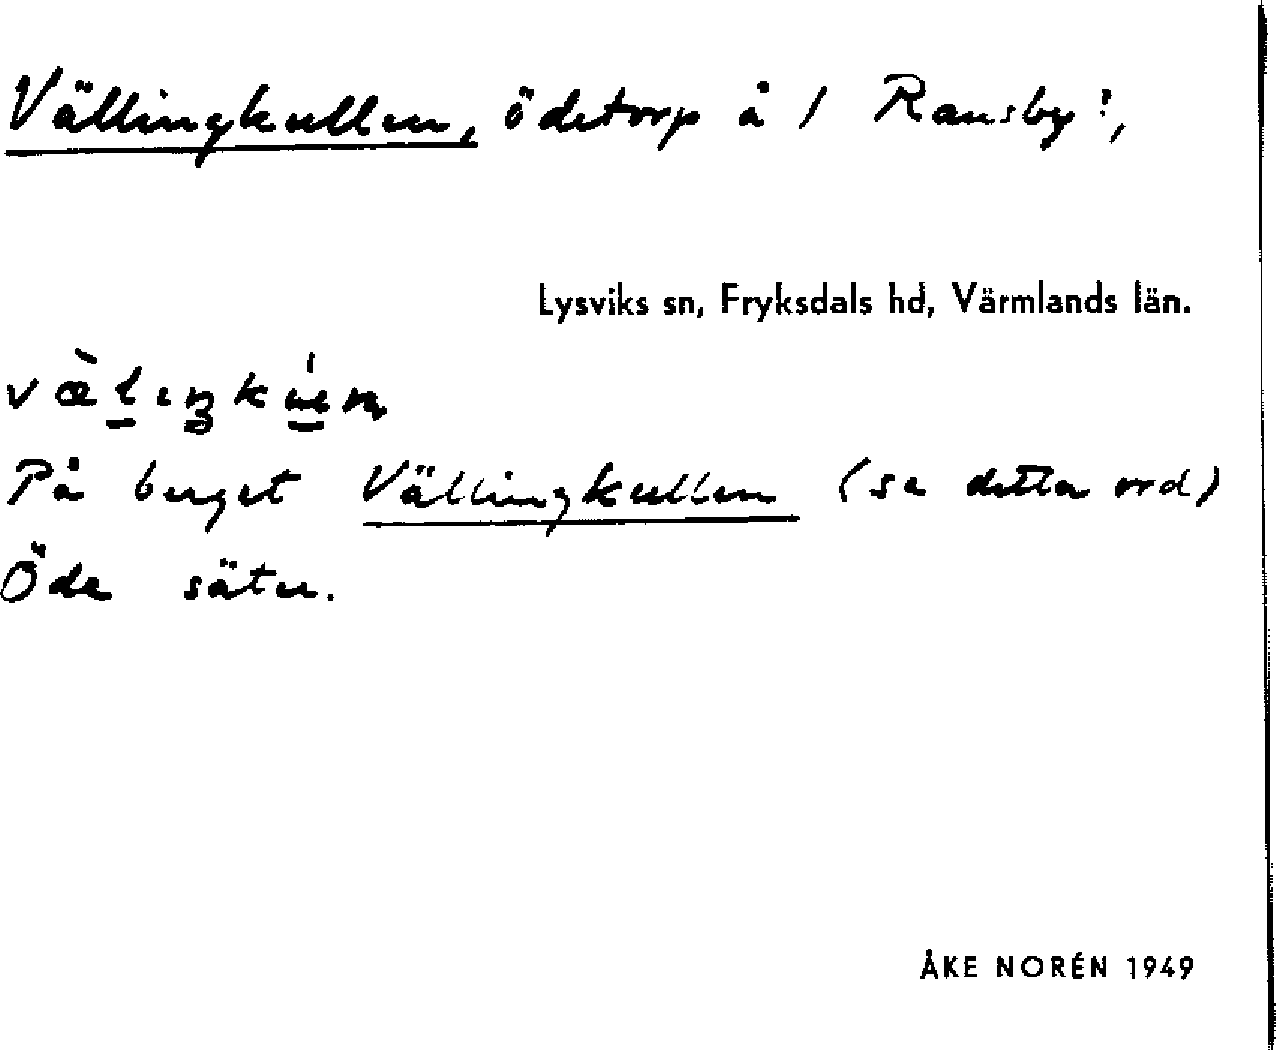 Vällingkullen, ödetorp å 1 Ransby:,
Lysviks sn, Fryksdals hd, Värmlands län.
På berget Vällingkullen (se detta ord)
Öde säter.
ÅKE NORÉN 1949